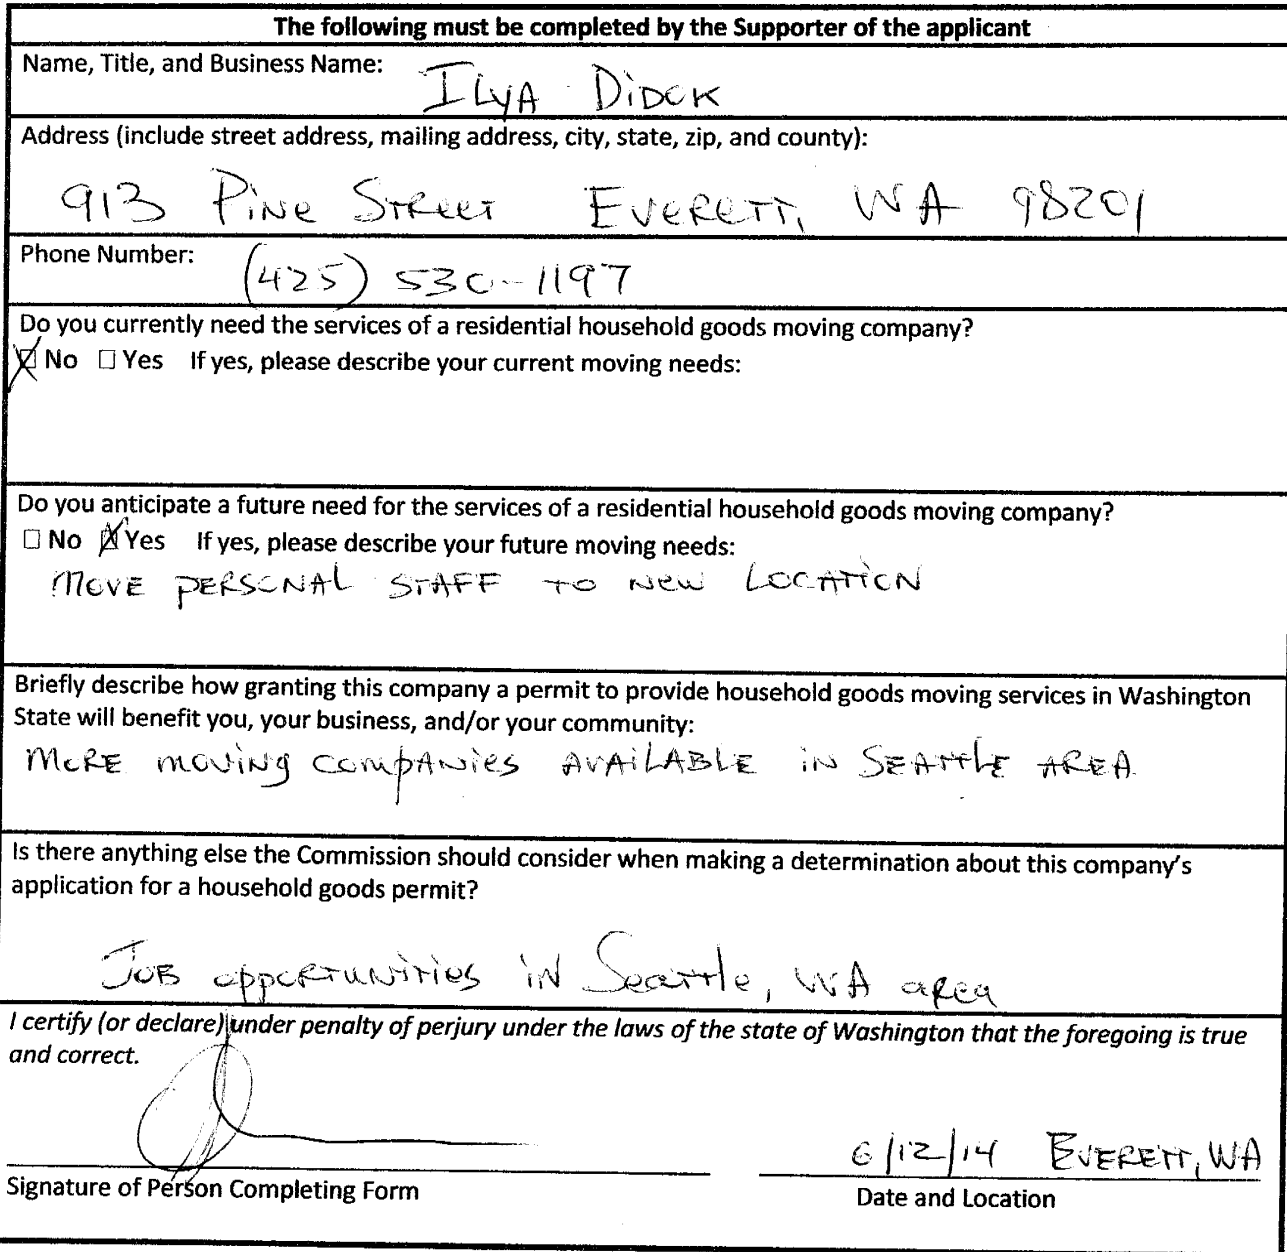 The following must be completed by the Supporter of the applicant
Name, Title, and Business Name: ILYA DIDOK
Address (include street address, mailing address, city, state, zip, and county):
913 Pine Street Everett, WA 98201
Phone Number: (425) 530-1197
Do you currently need the services of a residential household goods moving company?
☒ No ☐ Yes If yes, please describe your current moving needs:
Do you anticipate a future need for the services of a residential household goods moving company?
☐ No ☒ Yes If yes, please describe your future moving needs:
MOVE PERSONAL STAFF TO NEW LOCATION
Briefly describe how granting this company a permit to provide household goods moving services in Washington
State will benefit you, your business, and/or your community:
MORE moving companies AVAILABLE in SEATTLE AREA
Is there anything else the Commission should consider when making a determination about this company's
application for a household goods permit?
JOB opportunities in Seattle, WA area
I certify (or declare) under penalty of perjury under the laws of the state of Washington that the foregoing is true
and correct.
6/12/14 EVERETT, WA
Signature of Person Completing Form Date and Location